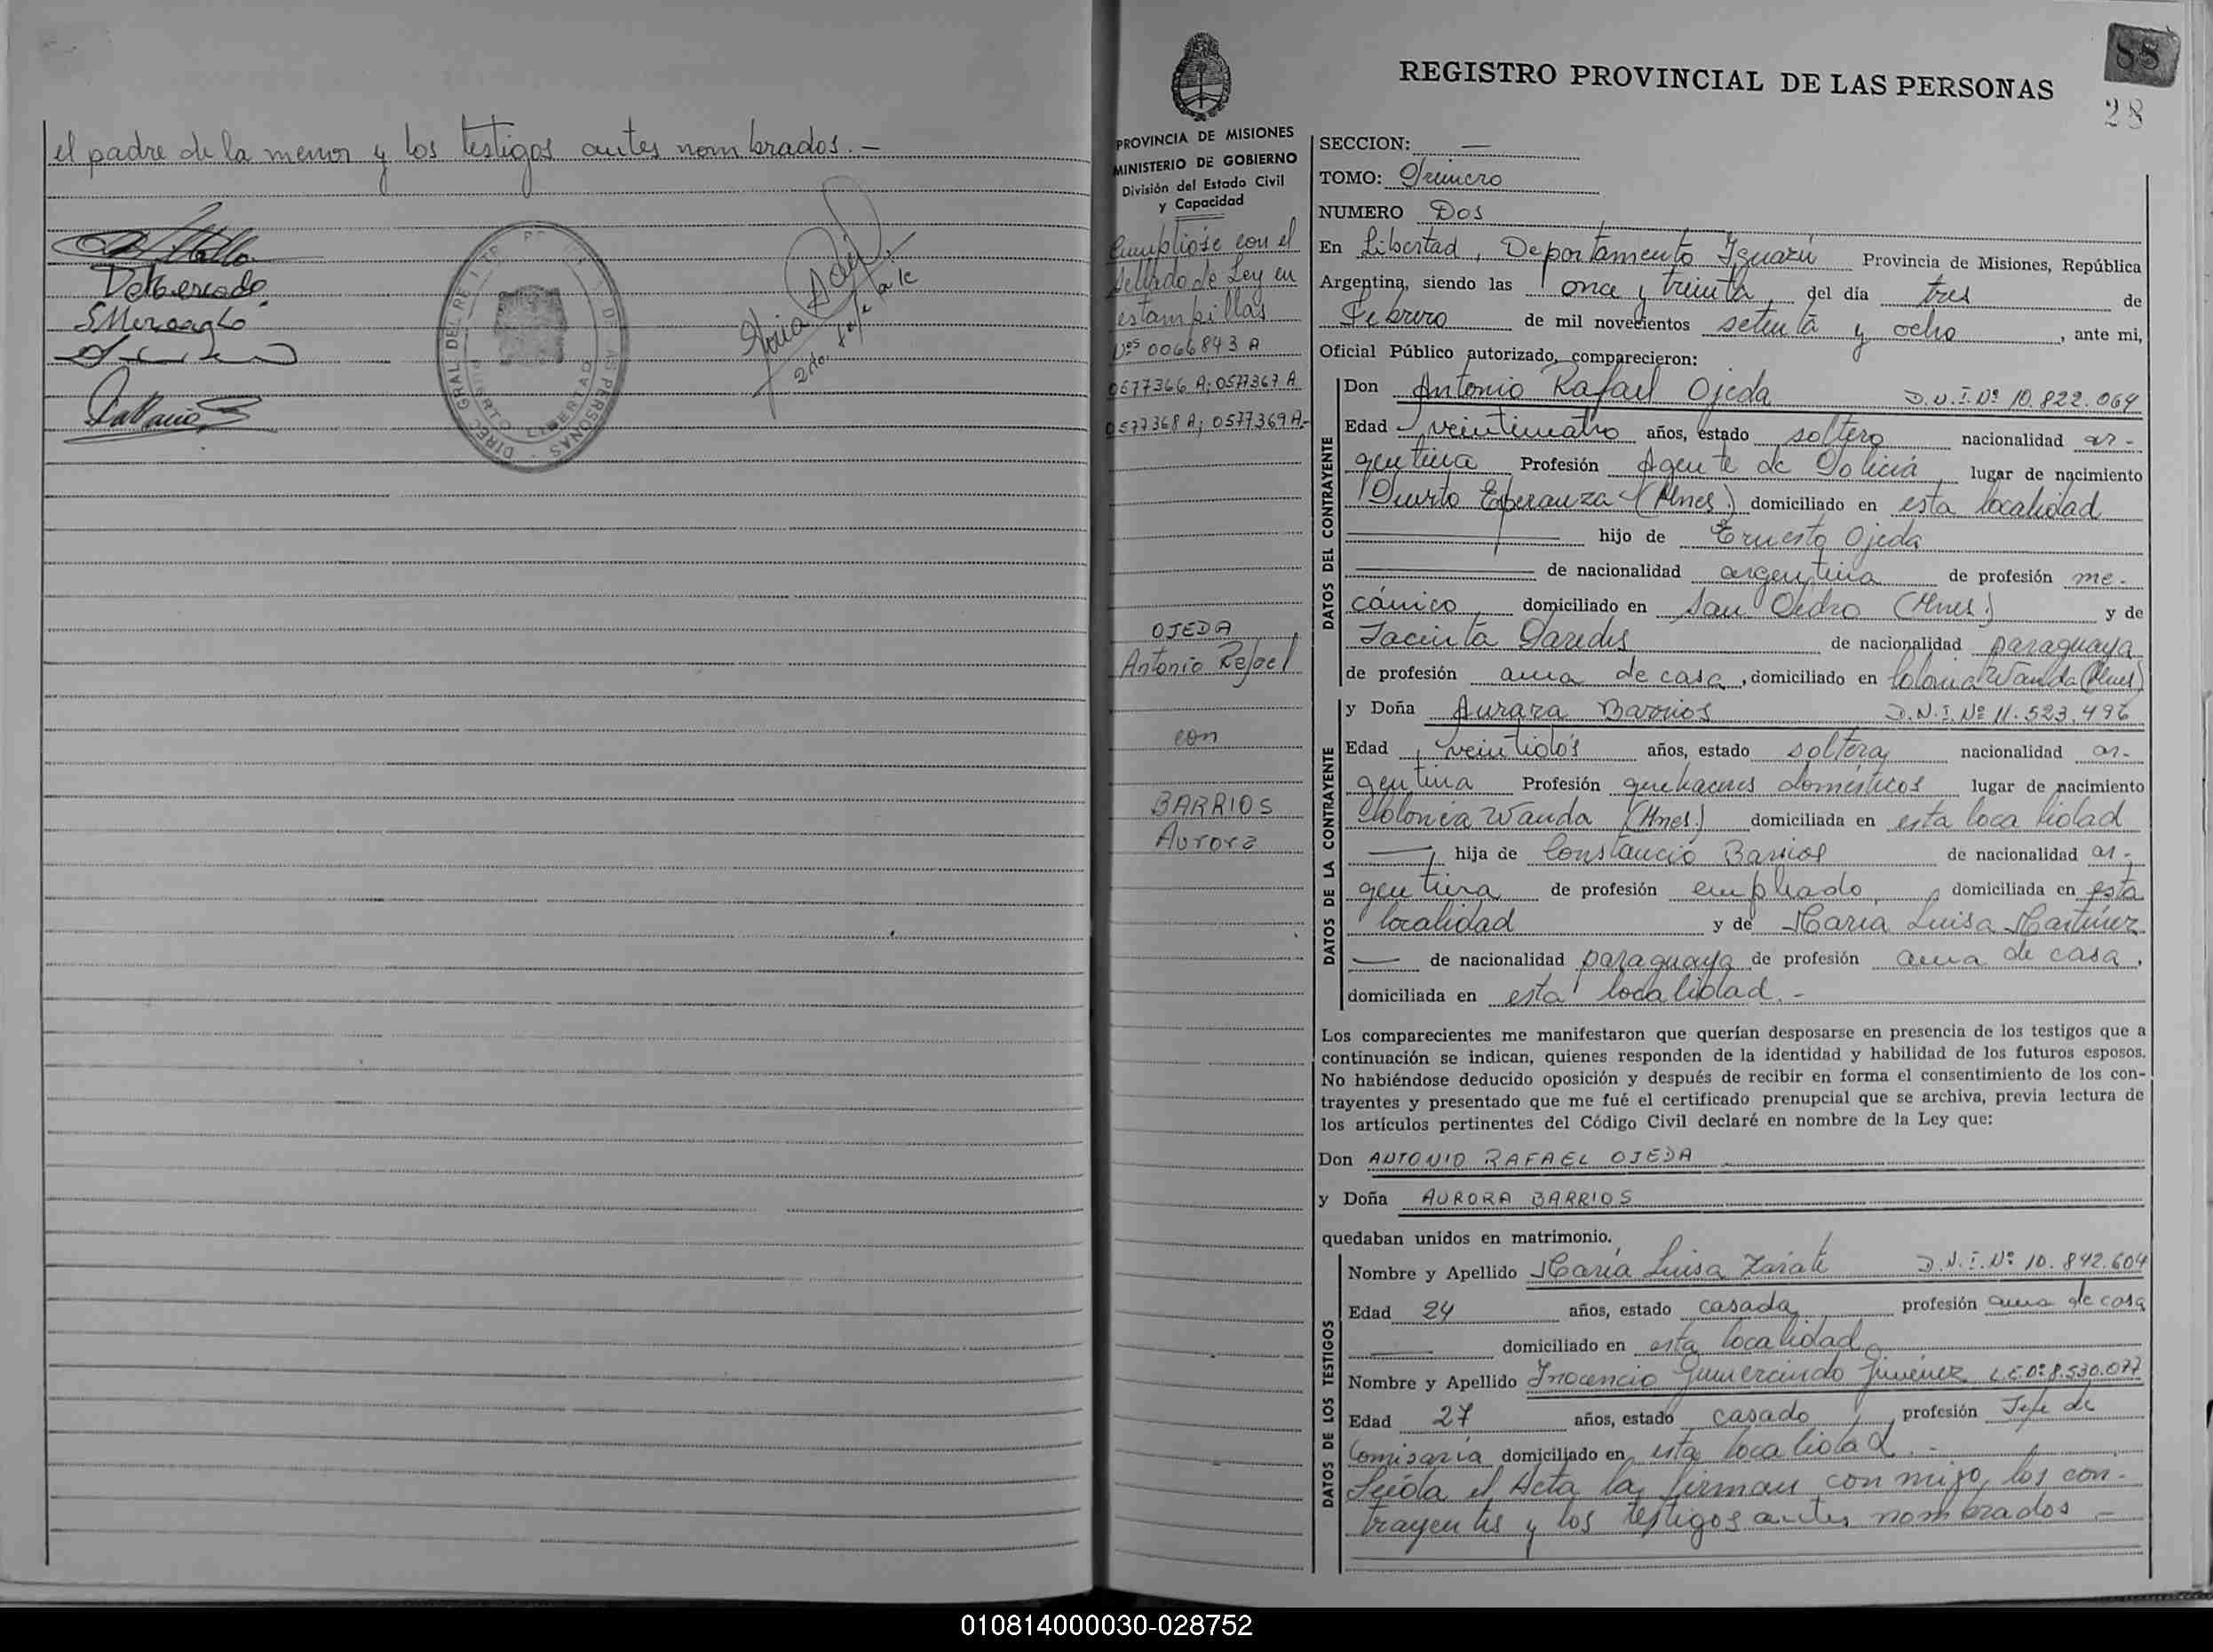 el padre de la menor y los testigos antes nombrados.-
REGISTRO PROVINCIAL DE LAS PERSONAS
88
28
PROVINCIA DE MISIONES
MINISTERIO DE GOBIERNO
División del Estado Civil
y Capacidad
Cumplióse con el
sellado de Ley en
estampillas
Nos 0066843 A
0577366 A; 0577367 A
0577368 A; 0577369 A.-
OJEDA
Antonio Rafael
con
BARRIOS
Aurora
SECCION: —
TOMO: Primero
NUMERO Dos
En Libertad, Departamento Iguazú Provincia de Misiones, República
Argentina, siendo las once y treinta, del día tres de
Febrero de mil novecientos setenta y ocho, ante mi,
Oficial Público autorizado, comparecieron:
DATOS DEL CONTRAYENTE
Don Antonio Rafael Ojeda D.N.I. Nº 10.822.064
Edad veinticuatro años, estado soltero nacionalidad ar-
gentina Profesión Agente de Policía, lugar de nacimiento
Puerto Esperanza (Mnes.) domiciliado en esta localidad
hijo de Ernesto Ojeda
de nacionalidad argentina de profesión me-
cánico, domiciliado en San Pedro (Mnes.) y de
Jacinta Paredes de nacionalidad paraguaya
de profesión ama de casa, domiciliado en Colonia Wanda (Mnes)
DATOS DE LA CONTRAYENTE
y Doña Aurora Barrios D.N.I. Nº 11.523.496
Edad veintidós años, estado soltera, nacionalidad ar-
gentina Profesión quehaceres domésticos lugar de nacimiento
Colonia Wanda (Mnes.) domiciliada en esta localidad
—, hija de Constancio Barrios de nacionalidad ar-
gentina de profesión empleado, domiciliada en esta
localidad y de María Luisa Martínez
— de nacionalidad paraguaya de profesión ama de casa,
domiciliada en esta localidad.-
Los comparecientes me manifestaron que querían desposarse en presencia de los testigos que a
continuación se indican, quienes responden de la identidad y habilidad de los futuros esposos.
No habiéndose deducido oposición y después de recibir en forma el consentimiento de los con-
trayentes y presentado que me fué el certificado prenupcial que se archiva, previa lectura de
los artículos pertinentes del Código Civil declaré en nombre de la Ley que:
Don ANTONIO RAFAEL OJEDA
y Doña AURORA BARRIOS
quedaban unidos en matrimonio.
DATOS DE LOS TESTIGOS
Nombre y Apellido María Luisa Zárate D.N.I. Nº 10.842.604
Edad 24 años, estado casada, profesión ama de casa
— domiciliado en esta localidad
Nombre y Apellido Inocencio Gumercindo Jiménez L.E. Nº 8.530.077
Edad 27 años, estado casado, profesión Jefe de
Comisaría domiciliado en esta localidad.-
Leída el Acta la firman conmigo, los con-
trayentes y los testigos antes nombrados -
010814000030-028752